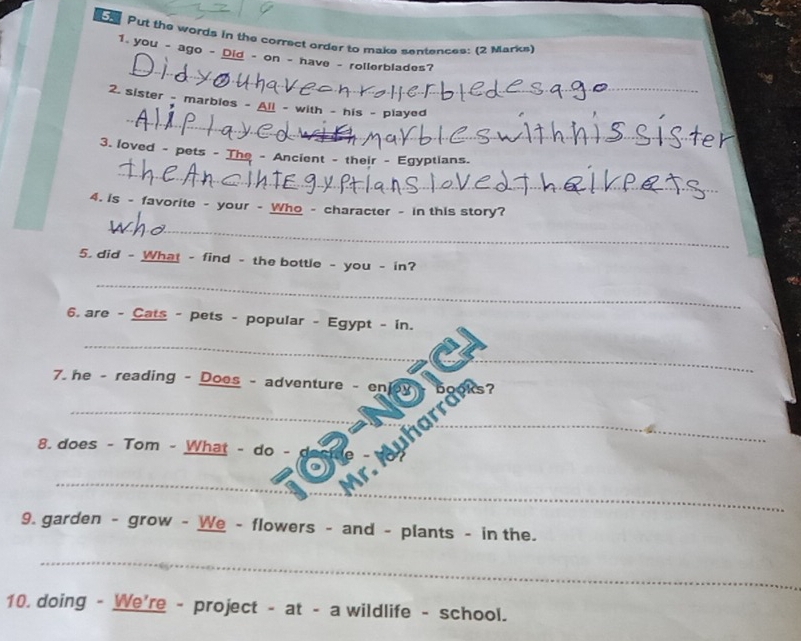 5. Put the words in the correct order to make sentences: (2 Marks)
1. you - ago - Did - on - have - rollerblades?
Did you have on rollerbledes ago
2. sister - marbles - Ali - with - his - played
Ali played marbles with his sister
3. loved - pets - The - Ancient - their - Egyptians.
the Ancint Egyptians loved their pets
4. is - favorite - your - Who - character - in this story?
who
5. did - What - find - the bottle - you - in?
6. are - Cats - pets - popular - Egypt - in.
7. he - reading - Does - adventure - enjoy - books?
8. does - Tom - What - do - decide - to?
9. garden - grow - We - flowers - and - plants - in the.
10. doing - We're - project - at - a wildlife - school.
TOP-NOTCH
Mr. Muharram